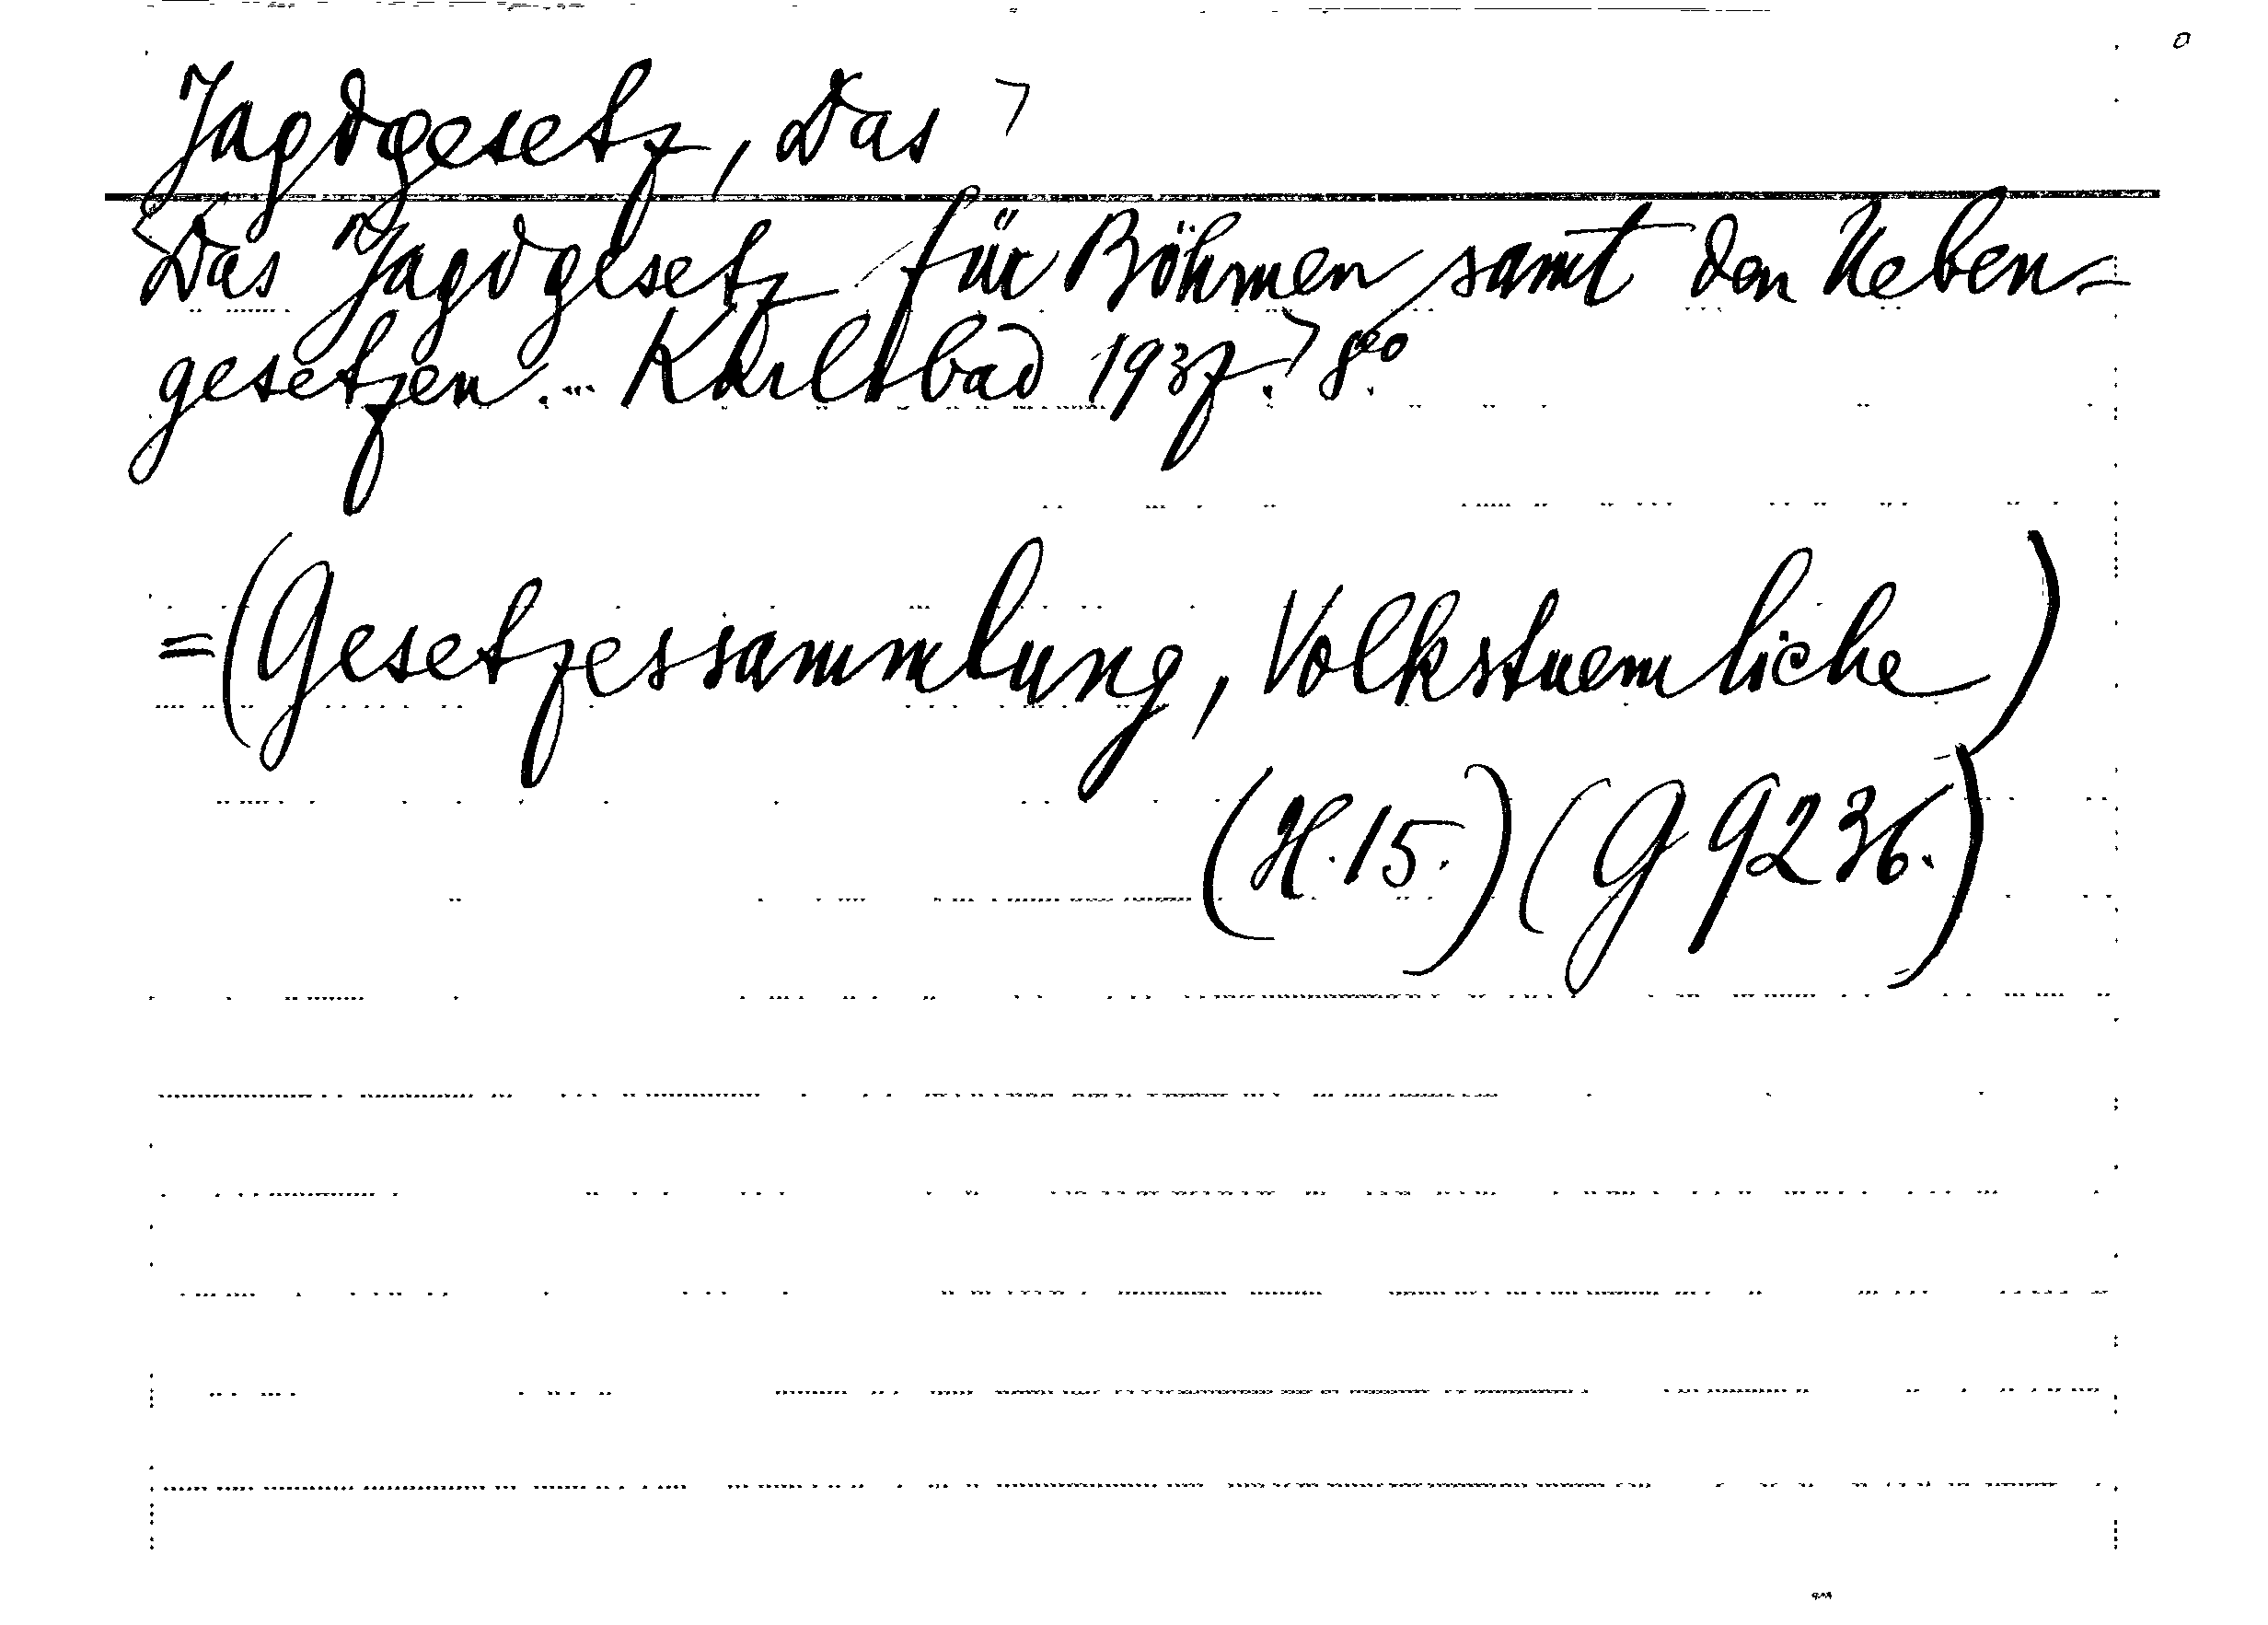 Jagdgesetz, Das
Das Jagdgesetz für Böhmen samt den Neben=
gesetzen. ... Karlsbad 1937. 8°
=(Gesetzessammlung, Volkstuemliche)
(H. 15.) (G 9236.)